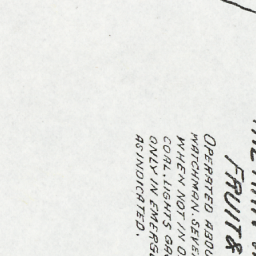 FRUIT &
OPERATED ABOU
WATCHMAN. SEVE
WHEN NOT IN O
COAL. LIGHTS GA
ONLY IN EMERGE
AS INDICATED.